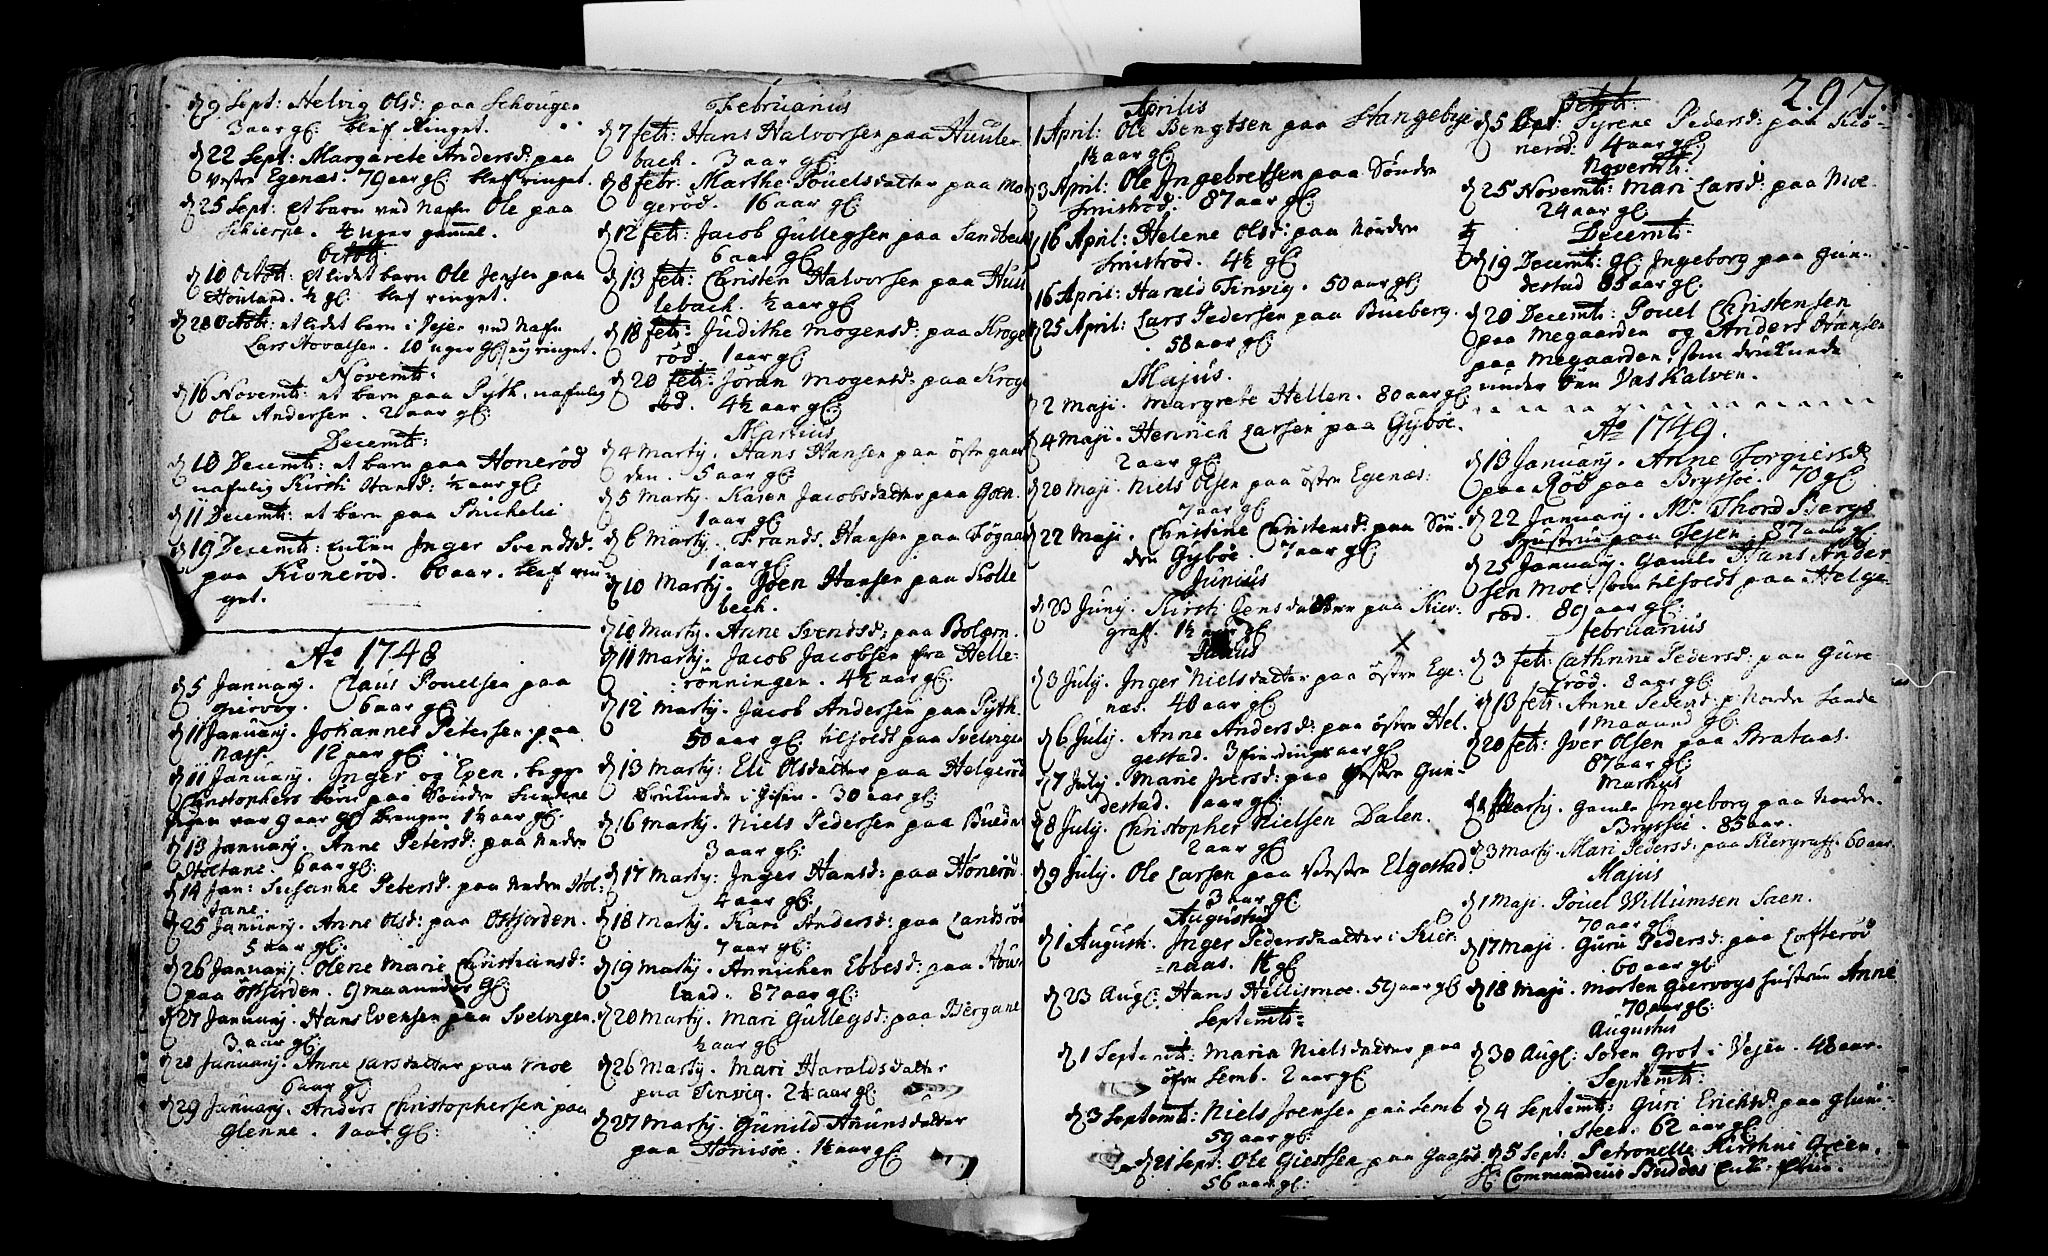 297.
d 9 Sept: Helvig Olsd: paa Schougen
3 aar gl: blef Ringet.
d 22 Sept: Margarete Andersd: paa
vestre Egenæs. 79 aar gl: blef ringet.
d 25 Sept: et barn ved Nafn Ole paa
Schierpe. 4 uger gammel.
Octobr:
d 10 Octobr: et lidet barn Ole Jensen paa
Houland. ½ gl: blef ringet.
d 28 Octobr: et lidet barn i Vejen ved Nafn
Lars 10 uger gl: ey ringet.
Novemb:
d 16 Novemb: et barn paa Pyth, nafnlig
Ole Andersen. 2 aar gl:
Decemb:
d 10 Decemb: et barn paa Honerød
nafnlig Kirsti Hansd: ½ aar gl:
d 11 Decemb: et barn paa
d 19 Decemb: Enken Inger Svendsd.
paa Kionerød. 60 aar. blef rin-
get.
Ao 1748
d 5 January. Claus Pouelsen paa
Giervog. 6 aar gl
d 11 January. Johannes Petersen paa
Næss. 12 aar gl:
d 11 January. Inger og Even, begge
Christophers børn paa Søndre
var 9 aar gl drengen 1½ aar gl:
d 13 January. Anne Petersd: paa nedre
Stoltane. 6 aar gl:
d 14 Jan: Susanne Petersd: paa neden Stol-
tane.
d 25 January. Anne Olsd: paa Østjorden.
5 aar gl:
d 26 January. Olene Marie Christiansd:
paa Østjorden. 9 maaneder gl:
d 27 January. Hans Evensen paa Svelvigen
3 aar gl:
d 28 January. Anne Larsdatter paa Moe
6 aar gl:
d 29 January. Anders Christophersen paa
Glenne. 1 aar gl:
Februarius
d 7 feb: Hans Halvorsen paa Huule-
bach. 3 aar gl:
d 8 febr: Marthe Pouelsdatter paa Mo-
gerød. 16 aar gl:
d 12 feb: Jacob Gullegsen paa Sandbech
6 aar gl:
d 13 feb: Christen Halvorsen paa Huu-
lebach. ½ aar gl
d 18 feb: Judithe Mogensd: paa Kroge
rød. 1 aar gl
d 20 feb: Jøran Mogensd: paa Kroge
rød. 4½ aar gl:
Martius
d 4 Marty. Hans Hansen paa Østgaar
den. 5 aar gl:
d 5 Marty. Karen Jacobsdatter paa Goen.
1 aar gl
d 6 Marty. Frands Hansen paa
1 aar gl:
d 10 Marty. Goen Hansen paa Kolle
bech.
d 10 Marty. Anne Svendsd: paa Bolærn.
d 11 Marty. Jacob Jacobsen fra Helle-
rønningen. 4½ aar gl:
d 12 Marty. Jacob Andersen paa Pyth.
50 aar gl: tilholdt paa Svelvigen
d 13 Marty: Eli Olsdatter paa Helgerød
druknede i 30 aar gl:
d 16 Marty. Niels Pedersen paa
3 aar gl:
d 17 Marty: Inger Hansd: paa Honerød
4 aar gl:
d 18 Marty. Kari Andersd: paa Landsrød
7 aar gl:
d 19 Marty. Annichen Ebbesd: paa Hou-
land. 87 aar gl:
d 20 Marty. Mari Gullegsd: paa Bergane
½ aar gl
d 26 Marty. Mari Haraldsdatter
paa Tinvig. 2½ aar gl:
d 27 Marty. Gunild Anunsdatter
paa Honisøe. 1½ aar gl:
Aprilis
1 April: Ole Bengtsen paa Stangebye
1½ aar gl:
d 3 April: Ole Ingebretsen paa Søndre
Smistrød. 87 aar gl:
d 16 April: Helene Olsd: paa norden
Smistrød. 4½ gl:
16 April: Harald Tinvig. 50 aar gl:
d 25 April: Lars Pedersen paa Bueberg.
58 aar gl
Majus.
d 2 Maji. Margrete Hellen. 80 aar gl:
d 4 Maji. Henrich Larsen paa Gyboe.
2 aar gl:
d 20 Maji. Niels Olsen paa østre Egenæs:
7 aar gl
d 22 Maji. Christine Christensd: paa Søn-
dre Gyboe. 7 aar gl:
Junius
d 23 Juny. Kirsti Jensdatter paa Kier-
graff. 1½ aar gl
Julius
d 3 July. Inger Nielsdatter paa østre Ege-
næs. 40 aar gl
d 6 July. Anne Andersd: paa østre Hel-
gestad. 3 fierdings aar gl
d 7 July. Marie Iversd: paa Vestre Gun-
destad. 1 aar gl:
d 8 July. Christopher Nielsen Dalen.
2 aar gl
d 9 July. Ole Larsen paa Vestre Elgestad
3 aar gl:
Augustus
d 1 August. Inger Pedersdaatter i Kier-
naas. 1½ gl
d 23 Aug: Hans Hellismoe. 59 aar gl
Septemb:
d 1 Septemb: Maria Nielsdatter paa
øfre Semb. 2 aar gl:
d 3 Septemb: Niels Ivensen paa Semb
59 aar gl:
d 21 Sept: Ole Giertsen paa
56 aar gl:
Octobr:
d 5 Syrene Pedersd: paa Kio-
nerød. 4 aar gl:
Novemb:
d 25 Novemb: Mari Larsd: paa Moe.
24 aar gl
Decemb:
d 19 Decemb: gl: Ingeborg paa Gun-
destad 85 aar gl:
d 20 Decemb: Pouel Christensen
paa Megaarden og Anders Sørensen
paa Megaarden, som druknede
under Øen Vaskalven.
Ao 1749.
d 13 January. Anne Torgiersd
paa Rød paa Bryssøe. 70 gl
d 22 January. Mr Thord Bergs
Hustrue paa Tejen. 87 aar gl
d 25 January. Gamle Hans Ander-
sen Moe, som tilholdt paa Helge-
rød. 89 aar gl:
februarius
d 3 feb: Cathrine Pedersd: paa Gure
rød. 8 aar gl:
d 13 feb: Anne Pedersd p: Nordre Sande
1 maaned gl:
d 20 feb: Iver Olsen paa Brataas.
87 aar gl:
Martius
d 2 Marty. Gamle Ingeborg paa Nordre
Bryssøe. 85 aar.
d 3 Marty. Mari Pedersd: paa Kiergraff. 60 aar.
Majus
d 1 Maji. Pouel Willumsen Soen.
70 aar gl:
d 17 Maji. Guru Pedersd: paa Lofterød
60 aar gl
d 18 Maji. Morten Giervogs hustrue Anne
70 aar gl:
Augustus
d 30 Aug: Soren Grot i Vejen. 48 aar.
Septemb:
d 4 Septemb: Guri Erichsd: paa Glom-
steen. 62 aar gl:
d 5 Sept: Petronelle Kirstine Green.
Sl: Commandeur Buddes